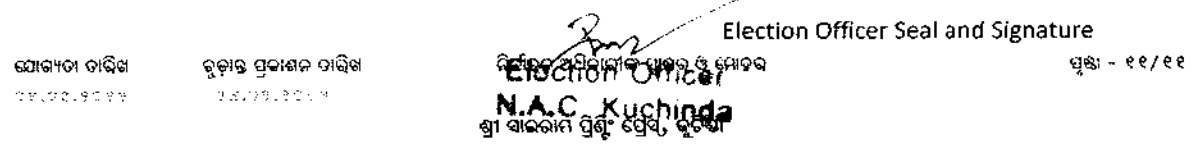 Election Officer Seal and Signature
ଯୋଗ୍ୟତା ତାରିଖ ଚୂଡ଼ାନ୍ତ ପ୍ରକାଶନ ତାରିଖ ନିର୍ବାଚନ ଅଧିକାରୀଙ୍କ ସ୍ୱାକ୍ଷର ଓ ମୋହର ପୃଷ୍ଠା - ୧୧/୧୧
Election Officer
N.A.C. Kuchinda
ଶ୍ରୀ ସାଇରାମ ପ୍ରିଣ୍ଟିଂ ପ୍ରେସ୍, କୁଚିଣ୍ଡା